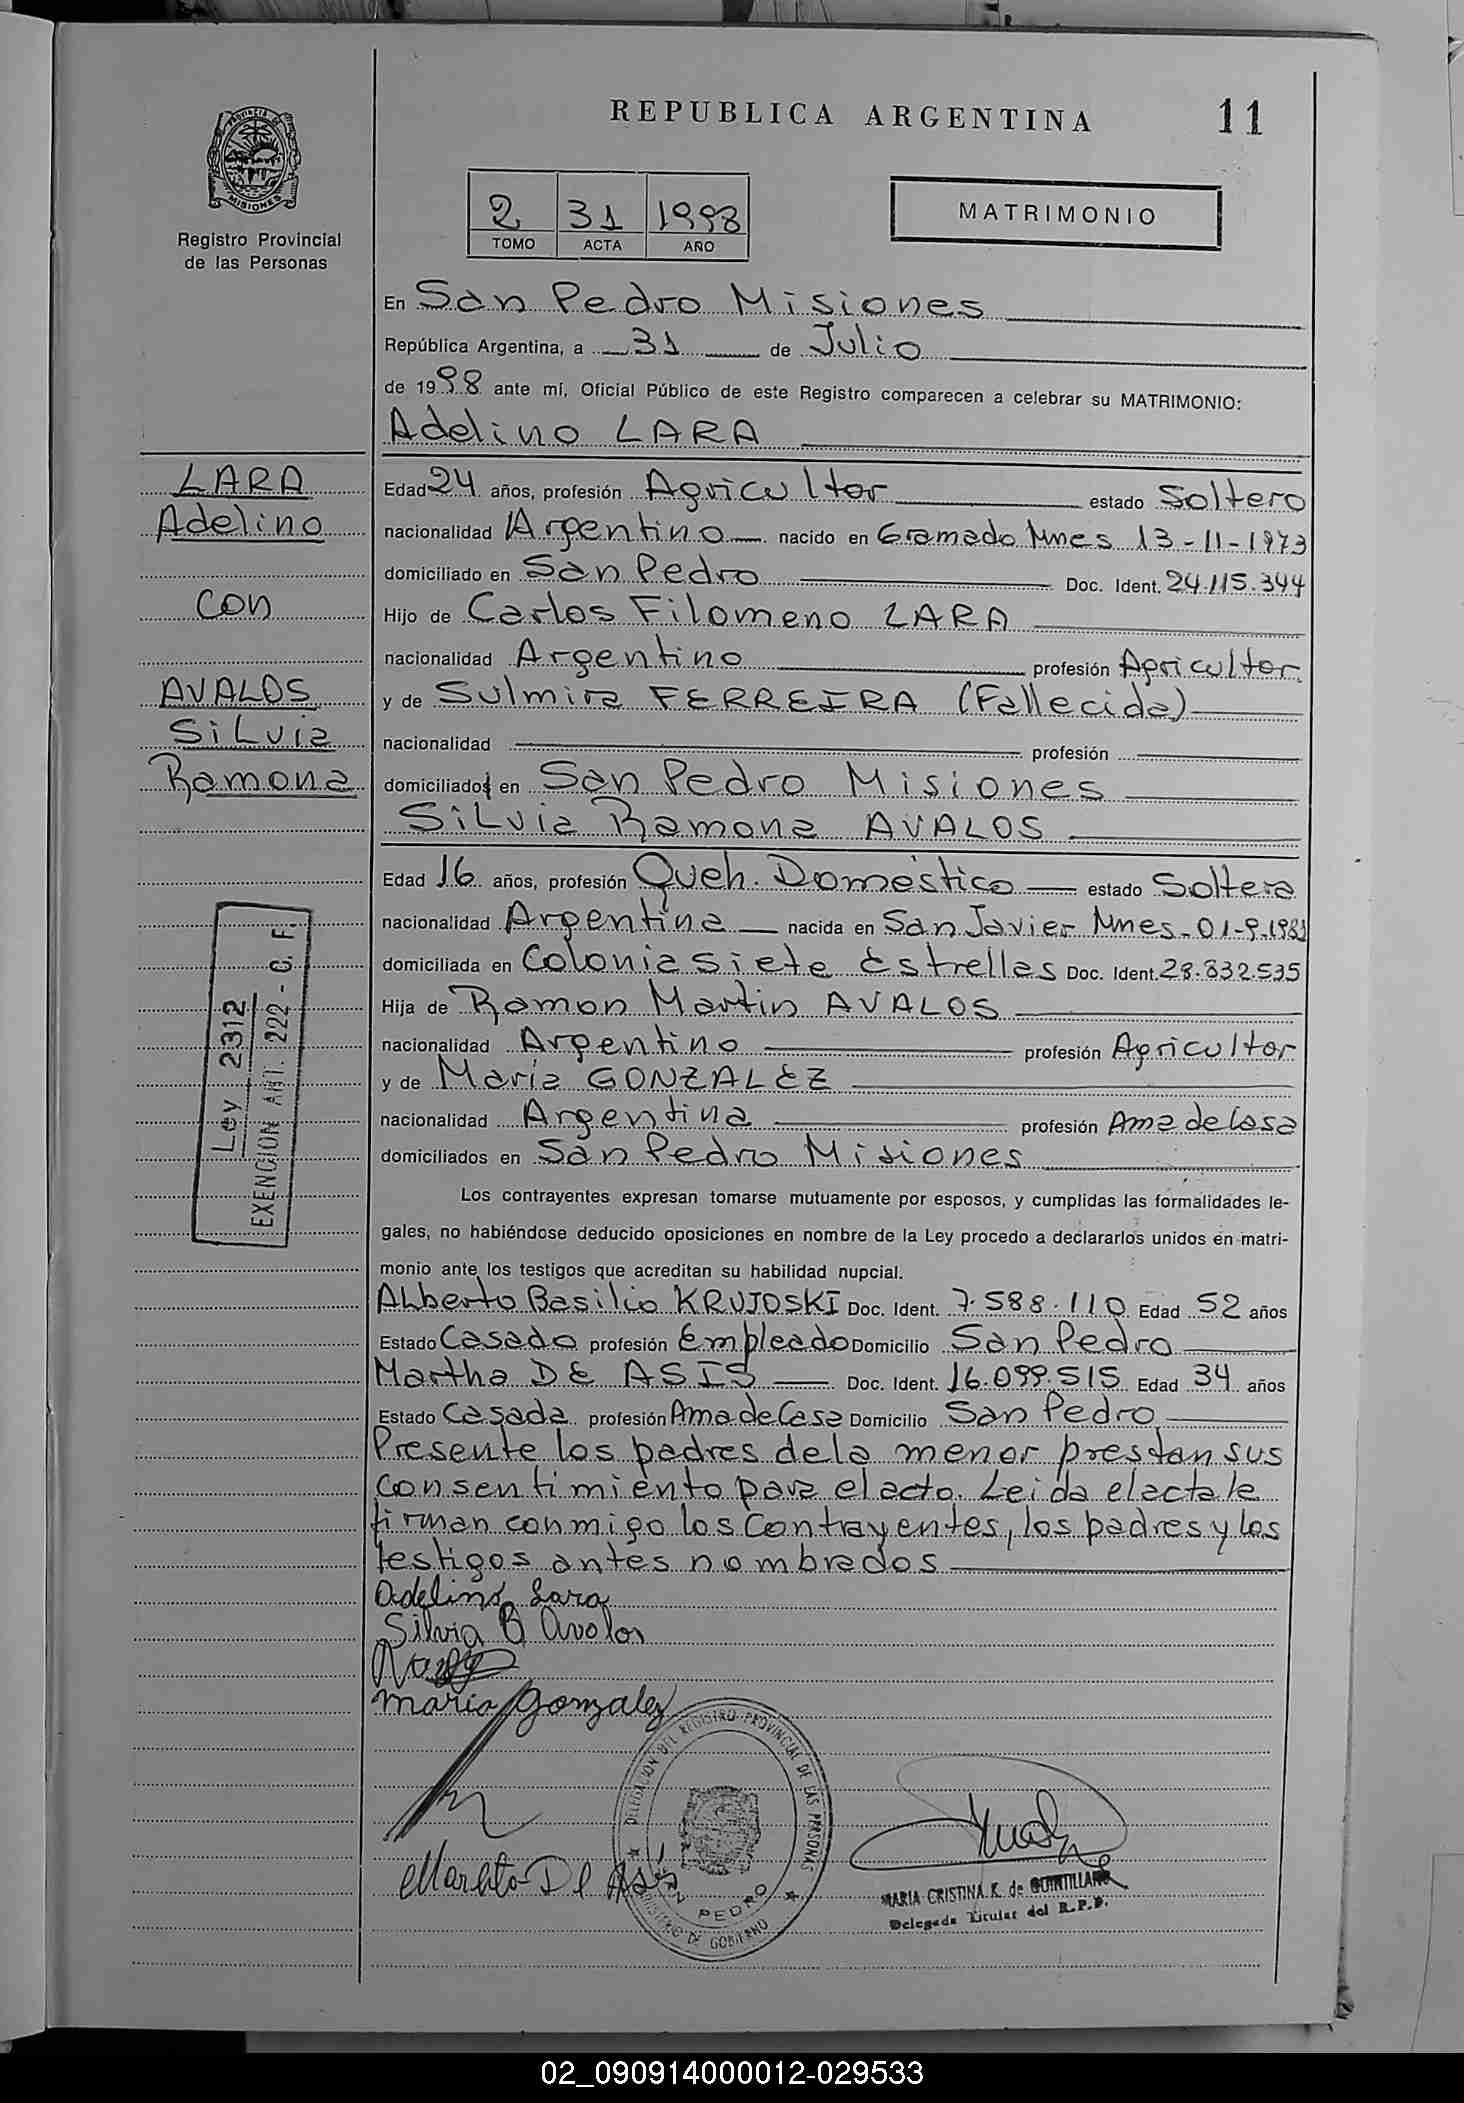 REPUBLICA ARGENTINA
11
PROVINCIA DE
MISIONES
Registro Provincial
de las Personas
2 31 1998
TOMO ACTA AÑO
MATRIMONIO
En San Pedro Misiones
República Argentina, a 31 de Julio
de 1998 ante mí, Oficial Público de este Registro comparecen a celebrar su MATRIMONIO:
Adelino LARA
LARA
Adelino
con
AVALOS
SiLvia
Ramona
Edad 24 años, profesión Agricultor estado Soltero
nacionalidad Argentino nacido en Gramado Mnes 13-11-1973
domiciliado en San Pedro Doc. Ident. 24.115.344
Hijo de Carlos Filomeno LARA
nacionalidad Argentino profesión Agricultor
y de Sulmira FERREIRA (Fallecida)
nacionalidad profesión
domiciliados en San Pedro Misiones
SiLvia Ramona AVALOS
Edad 16 años, profesión Queh. Doméstico estado Soltera
nacionalidad Argentina nacida en San Javier Mnes. 01-9-1981
domiciliada en Colonia Siete Estrellas Doc. Ident. 28.832.535
Hija de Ramon Martin AVALOS
nacionalidad Argentino profesión Agricultor
y de María GONZALEZ
nacionalidad Argentina profesión Ama de Casa
domiciliados en San Pedro Misiones
Ley 2312
EXENCION ART. 222 - C. F.
Los contrayentes expresan tomarse mutuamente por esposos, y cumplidas las formalidades le-
gales, no habiéndose deducido oposiciones en nombre de la Ley procedo a declararlos unidos en matri-
monio ante los testigos que acreditan su habilidad nupcial.
ALberto Basilio KRUJOSKI Doc. Ident. 7.588.110 Edad 52 años
Estado Casado profesión Empleado Domicilio San Pedro
Martha DE ASIS Doc. Ident. 16.099.515 Edad 34 años
Estado Casada profesión Ama de Casa Domicilio San Pedro
Presente los padres de la menor prestan sus
consentimiento para el acto. Leida el acta le
firman conmigo los Contrayentes, los padres y los
testigos antes nombrados
Adelino Lara
Silvia R Avalos
maria gonzalez
Martha De Asís
DELEGACION DEL REGISTRO PROVINCIAL DE LAS PERSONAS
SAN PEDRO
MINISTERIO DE GOBIERNO
MARIA CRISTINA K. de QUINTILLAN
Delegada Titular del R.P.P.
02_090914000012-029533